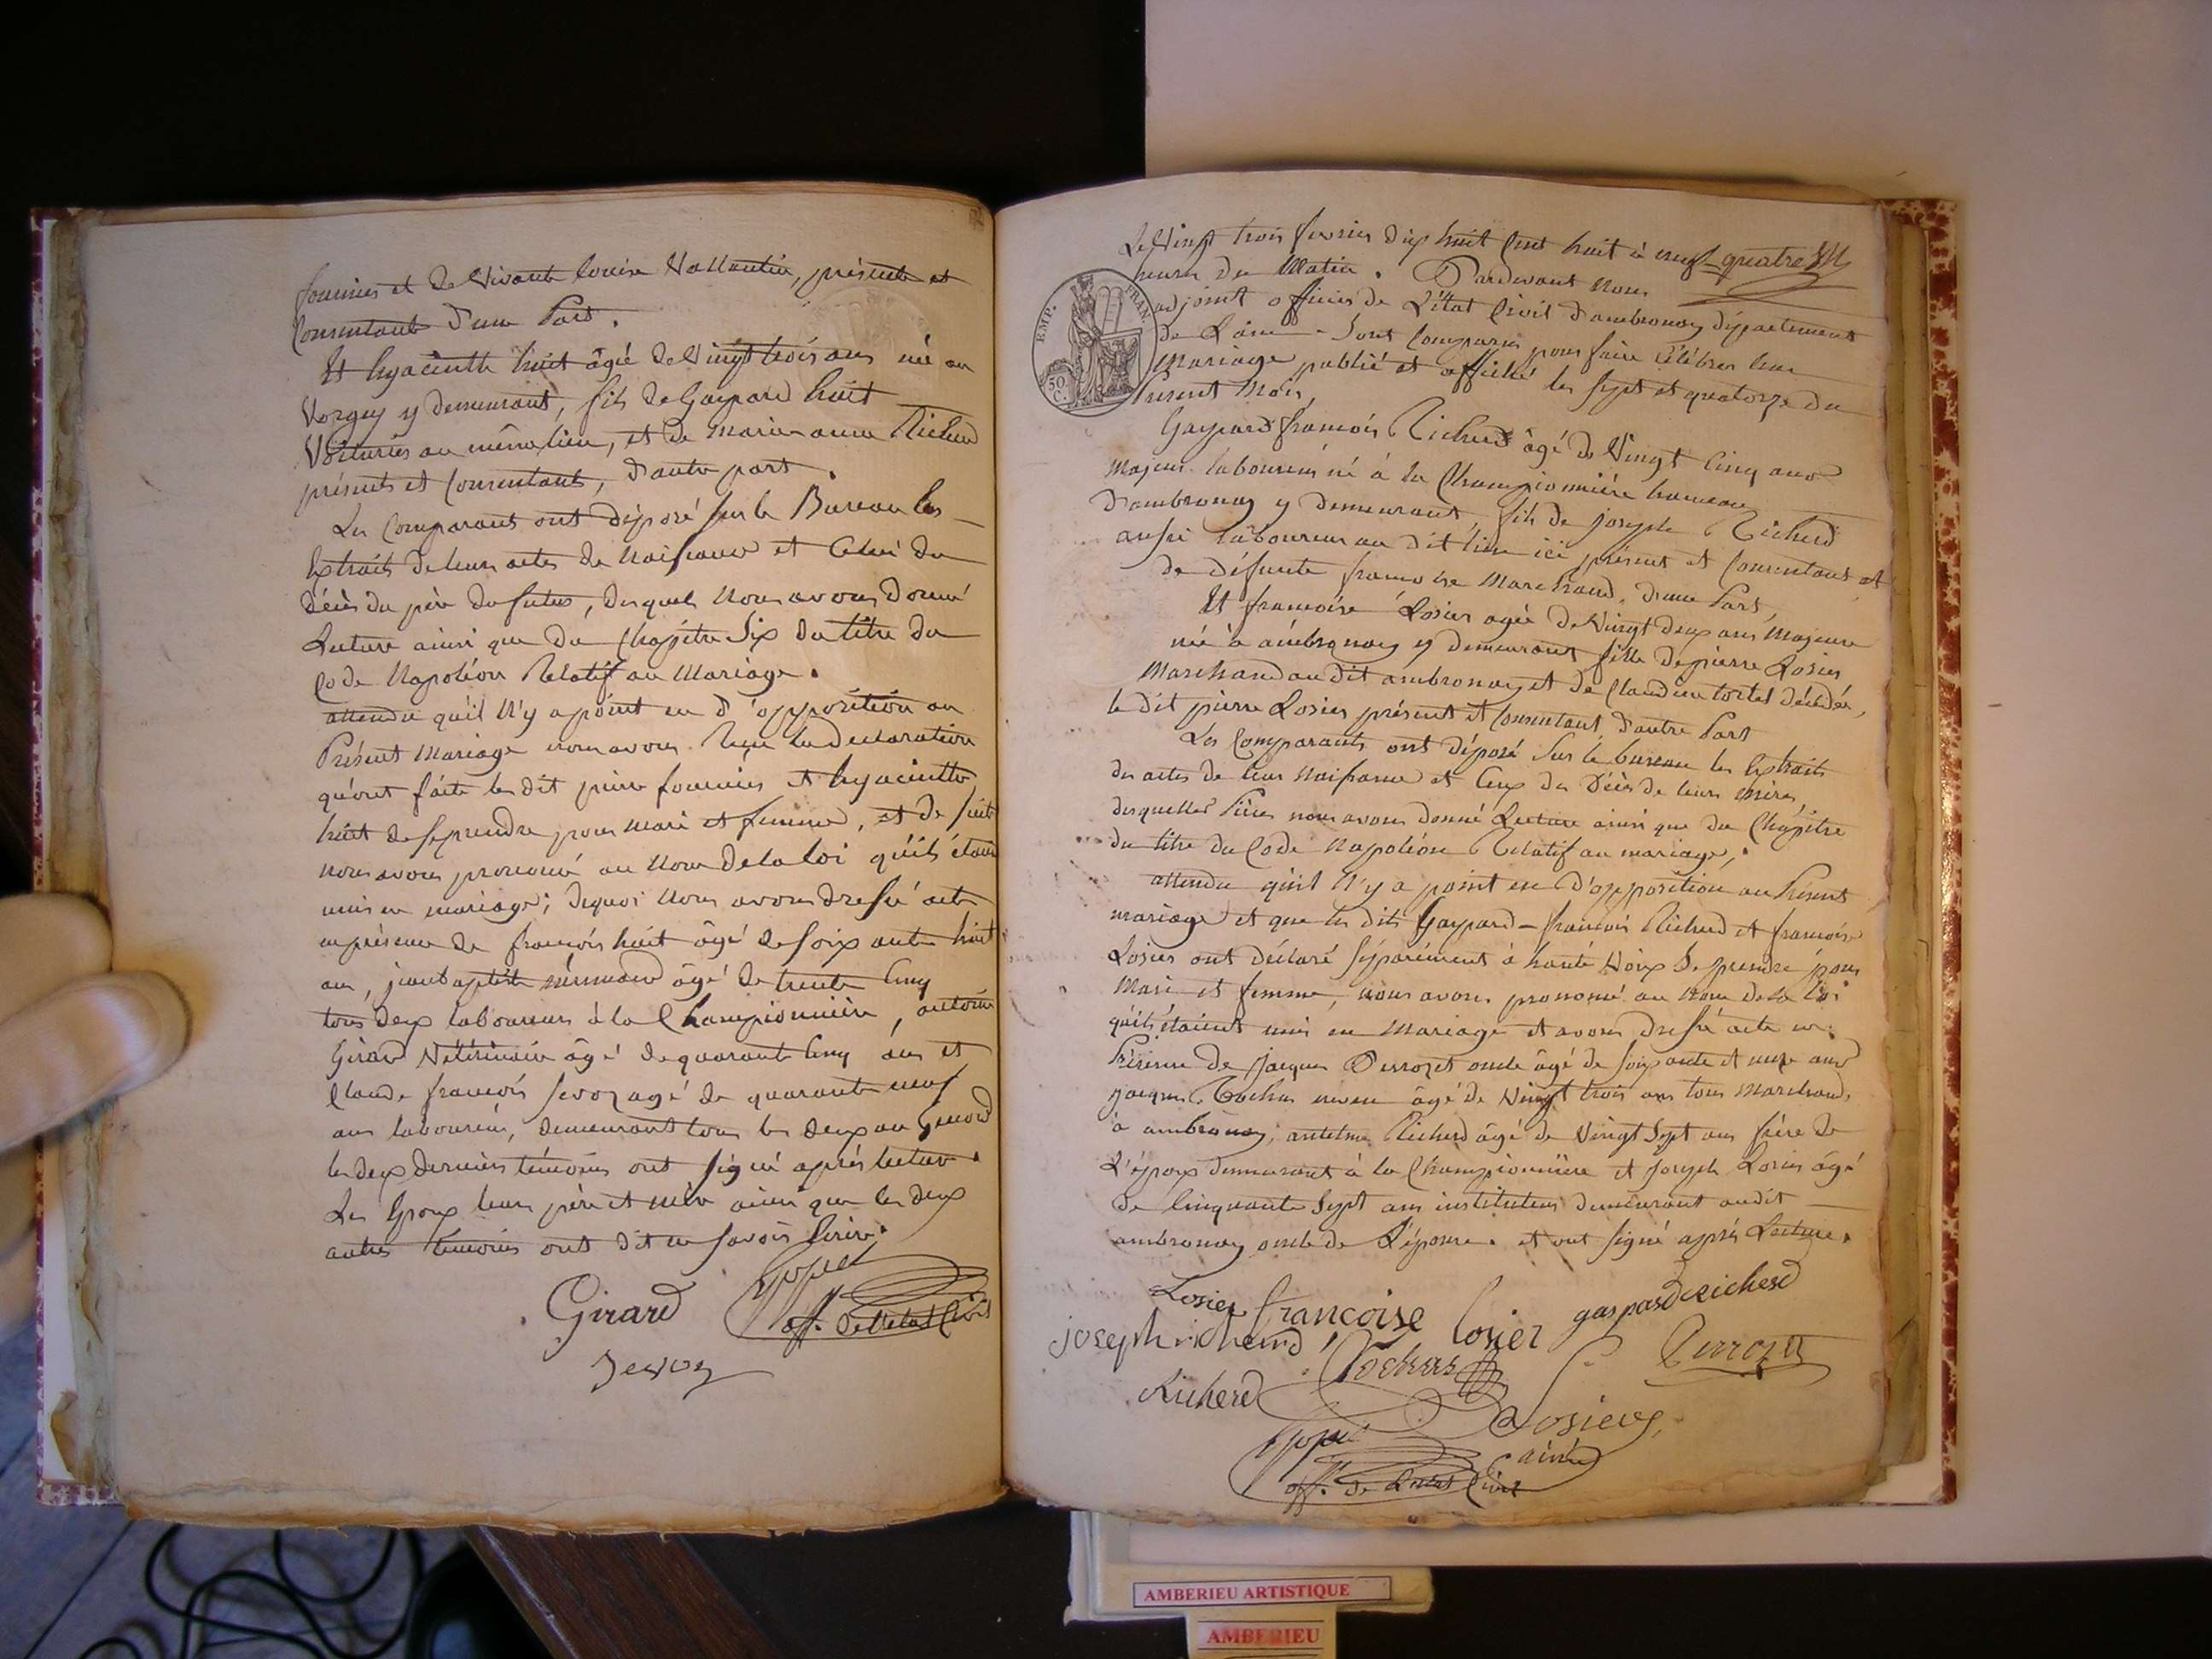 fournier et de Vivante louise Vallantin, présente et
Consentante d'une Part.
Et hyacinthe huit âgé de Vingt trois ans né au
Vorgey y demeurant, fils de Gaspard huit
Voiturier au même lieu, et de marie anne Richerd
présents et Consentants, d'autre part.
Les Comparants ont déposé sur le Bureau les
Extraits de leurs actes de Naissance et Celui du
décès du père du futur, desquels Nous avons donné
Lecture ainsi que du Chapitre Six du titre du
Code Napoléon Relatif au Mariage.
attendu qu'il N'y a point eu d'opposition au
Présent Mariage nous avons Reçu la declaration
qu'ont faite les dit pierre fournier et hyacinthe
huit de se prendre pour mari et femme, et de suite
nous avons prononcé au Nom de la loi qu'ils étaient
unis en mariage; de quoi Nous avons dressé acte
en présence de françois huit âgé de soixante huit
ans, jean baptiste âgé de trente Cinq
tous deux laboureurs à la Championnière, antoine
Girard Vétérinaire âgé de quarante Cinq ans et
Claude françois Sevoz agé de quarante neuf
ans laboureur, demeurant tous les deux au Genoud
les deux derniers témoins ont signé après lecture.
Les Epoux leurs père et mère ainsi que les deux
autres témoins ont dit ne savoir Ecrire.
Girard
off. de l'état Civil
Sevoz
Le Vingt trois fevrier dix huit Cent huit à vingt-quatre
heures du Matin. Pardevant Nous
adjoint officier de L'état Civil d'ambronay département
de L'ain - Sont Comparus pour faire célébrer leur
Mariage publié et affiché les sept et quatorze du
Présent Mois,
EMP. FRAN.
50. C.
Gaspard françois Richerd âgé de Vingt Cinq ans
Majeur laboureur né à la Championnière hameau
d'ambronay y demeurant, fils de joseph Richerd
aussi laboureur au dit lieu ici présent et Consentant et
de défunte françoise Marchand, d'une Part,
Et françoise Losier agée de Vingt deux ans Majeure
née à ambronay y demeurant fille de pierre Losier
Marchand au dit ambronay et de Claudine tortel décédée,
le dit pierre Losier présent et Consentant, d'autre Part
Les Comparants ont déposé Sur le bureau les Extraits
des actes de leur Naissance et Ceux du Décès de leurs mères,
desquelles Pièces nous avons donné Lecture ainsi que du Chapitre
du titre du Code Napoléon Relatif au mariage;
attendu qu'il N'y a point eu D'opposition au Présent
mariage et que les dits Gaspard-françois Richerd et françoise
Losier ont déclaré séparément à haute Voix Se prendre pour
Mari et femme, nous avons prononcé au Nom de la Loi
qu'ils étaient unis en Mariage et avons dressé acte en
Présence de Jacques Perrozet oncle âgé de soixante et onze ans
Jacques Cochas neveu âgé de Vingt trois ans tous Marchands
à ambronay, antelme Richerd âgé de Vingt Sept ans frère de
L'époux demeurant à la Championnière et Joseph Losier âgé
de Cinquante Sept ans instituteur demeurant audit
ambronay oncle de L'épouse. et ont signé après Lecture.
Losier françoise losier gaspard Richerd
joseph richerd Cochas Perrozet
Richerd Losier
ainé
off. de L'état Civil
AMBERIEU ARTISTIQUE
AMBERIEU